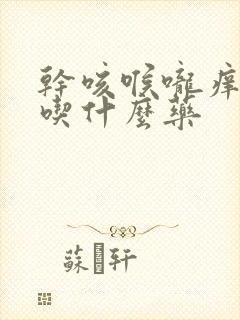 幹咳喉嚨痒
喫什麼藥
蘇軒